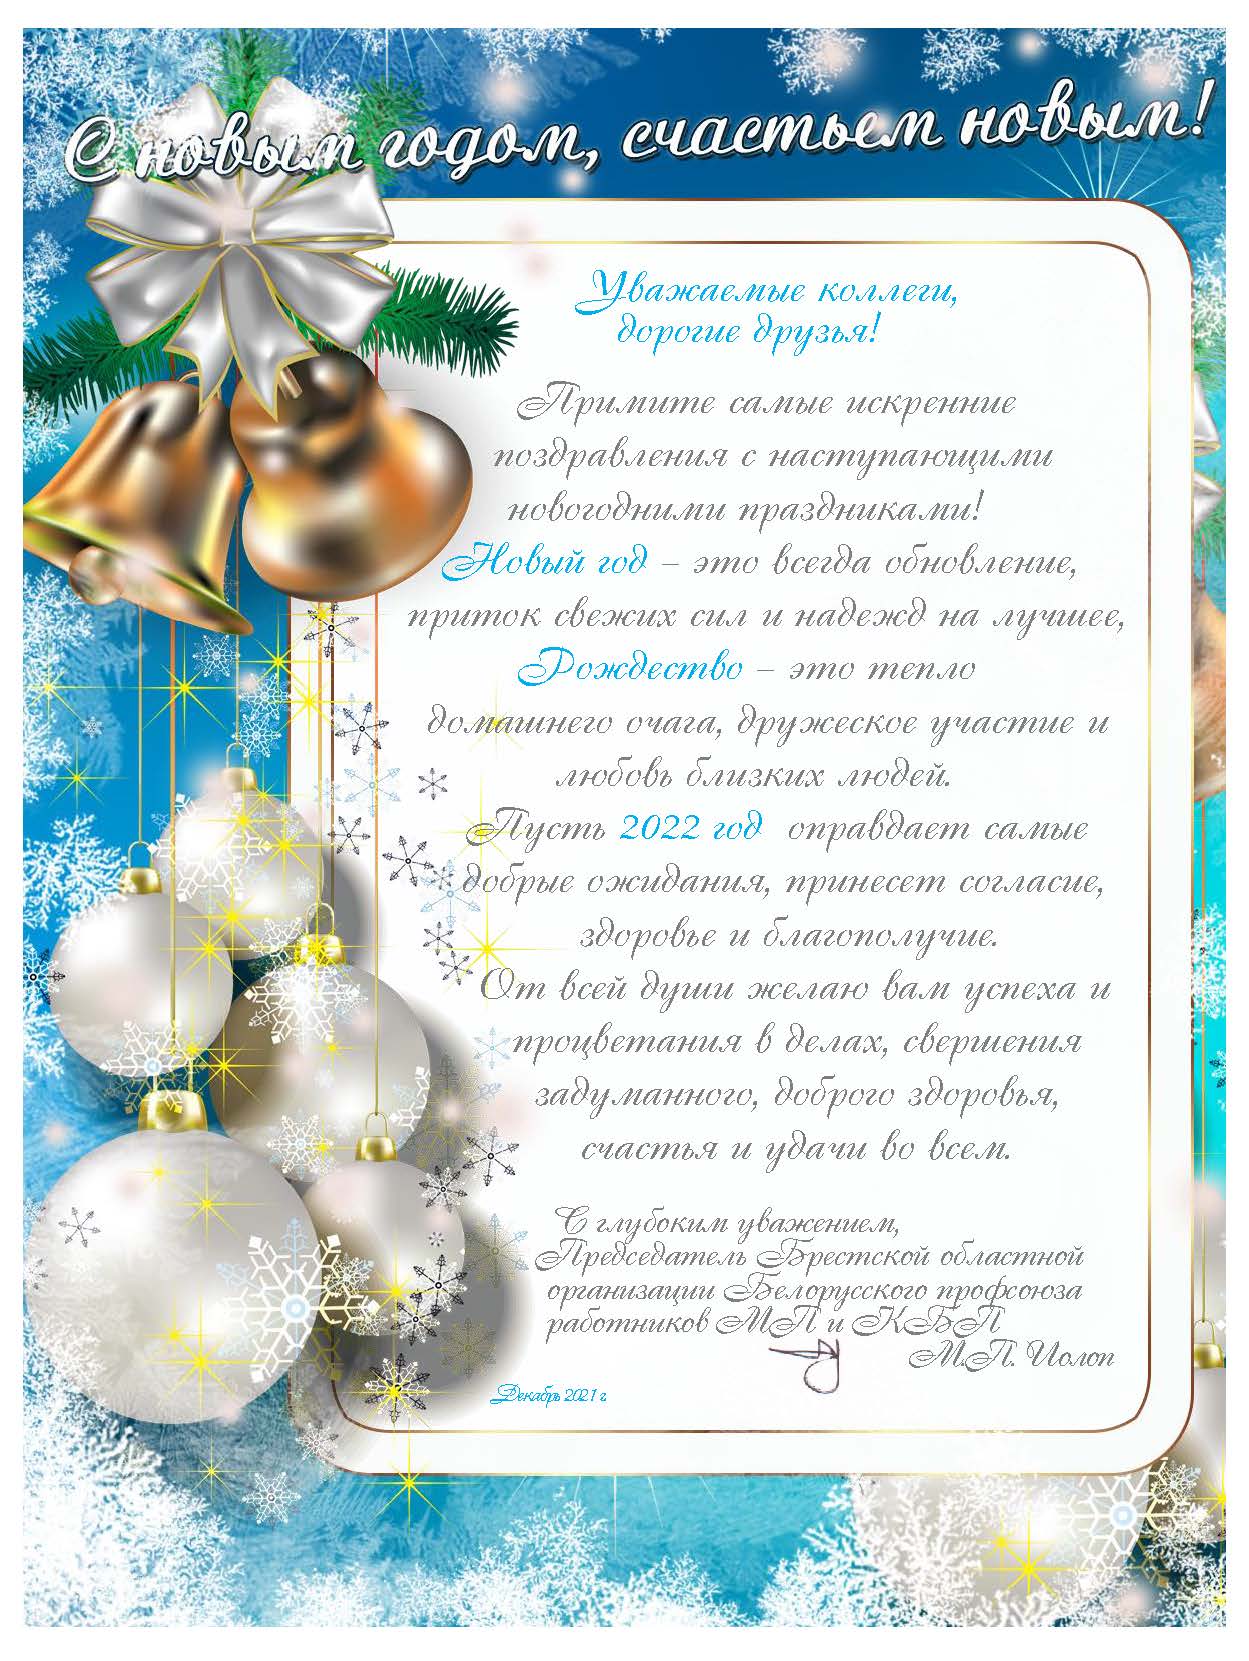 С новым годом, счастьем новым!
Уважаемые коллеги,
дорогие друзья!
Примите самые искренние
поздравления с наступающими
новогодними праздниками!
Новый год – это всегда обновление,
приток свежих сил и надежд на лучшее,
Рождество – это тепло
домашнего очага, дружеское участие и
любовь близких людей.
Пусть 2022 год оправдает самые
добрые ожидания, принесет согласие,
здоровье и благополучие.
От всей души желаю вам успеха и
процветания в делах, свершения
задуманного, доброго здоровья,
счастья и удачи во всем.
С глубоким уважением,
Председатель Брестской областной
организации Белорусского профсоюза
работников МП и КБП
М.П. Иолоп
Декабрь 2021 г.